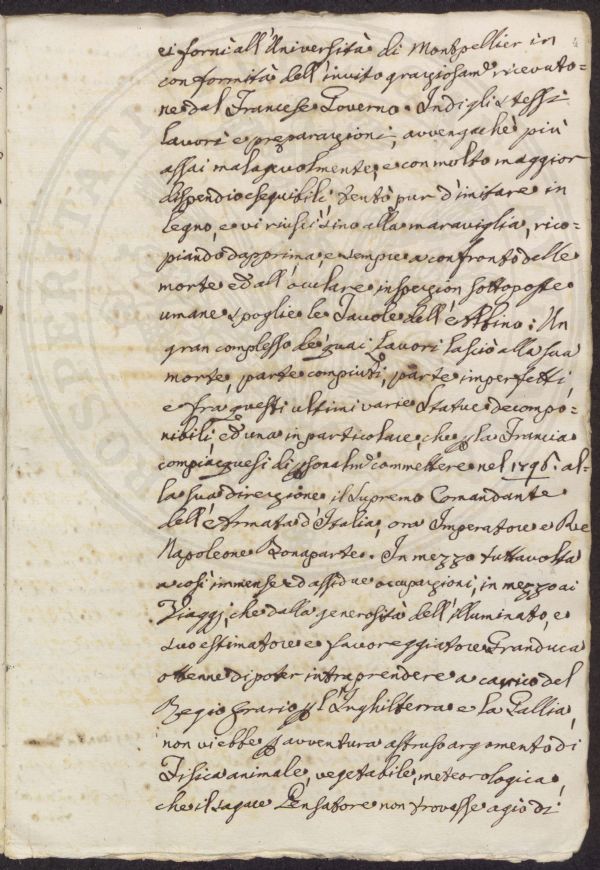 ei fornì all'Università di Montpellier in
conformità dell'invito graziosam.e ricevuto=
ne dal Francese Governo. Indi gli stessi
lavori e preparazioni, avvengachè più
assai malagevolmente, e con molto maggior
dispendio eseguibili, tentò pur d'imitare in
legno, e vi riuscì sino alla maraviglia, rico=
piando dapprima, e sempre a confronto delle
morte ed all'oculare inspezion sottoposte
umane spoglie le Tavole dell'Albino: Un
gran complesso de' quai Lavori lasciò alla sua
morte, parte compiuti, parte imperfetti,
e fra questi ultimi varie Statue decompo=
nibili, ed una in particolare, che p la Francia
compiacquesi di psonalm.e commettere nel 1796. al=
la sua direzione il Supremo Comandante
dell'Armata d'Italia, ora Imperatore e Re
Napoleone Bonaparte. In mezzo tuttavolta
a così immense ed assidue occupazioni, in mezzo ai
Viaggj, che dalla generosità dell'illuminato, e
suo estimatore e favoreggiatore Granduca
ottenne di poter intraprendere a carico del
Regio Erario p l'Inghilterra e la Gallia,
non vi ebbe p avventura astruso argomento di
Fisica animale, vegetabile, meteorologica,
che il sagace Pensatore non trovasse agio di